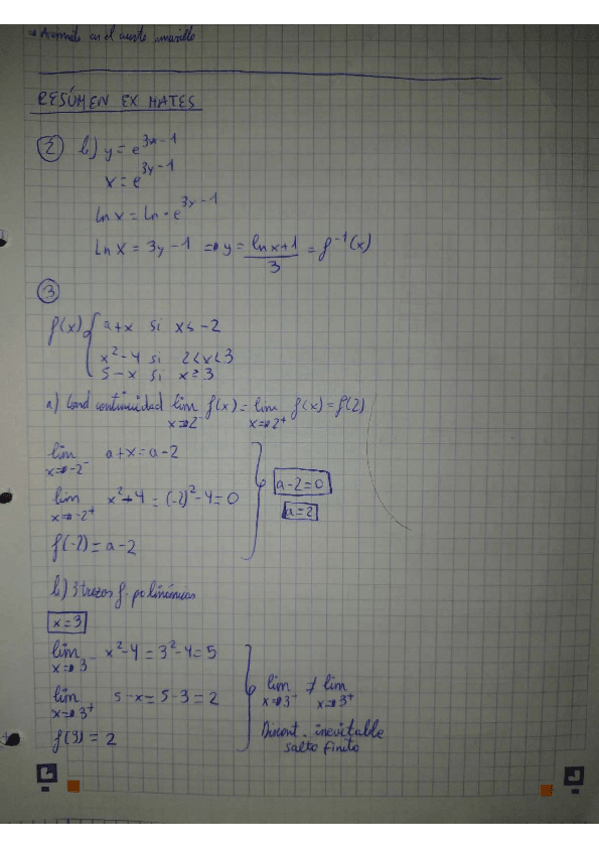 en el amarillo
RESÚMEN EX MATES
② b) y = e^{3x-1}
x = e^{3y-1}
ln x = ln · e^{3y-1}
ln x = 3y-1 ⇒ y = \frac{ln x+1}{3} = f^{-1}(x)
③
f(x) { a+x si x≤-2
x²-4 si 2<x<3
5-x si x≥3
a) Cond continuidad lim_{x→2^-} f(x) = lim_{x→2^+} f(x) = f(2)
lim_{x→-2^-} a+x = a-2
a-2=0
lim_{x→-2^+} x²-4 = (-2)²-4 = 0
a=2
f(-2) = a-2
b) 3 trozos f. polinómicas
x=3
lim_{x→3^-} x²-4 = 3²-4 = 5
lim_{x→3^+} 5-x = 5-3 = 2
lim_{x→3^-} ≠ lim_{x→3^+}
f(3) = 2
Discont. inevitable
salto finito